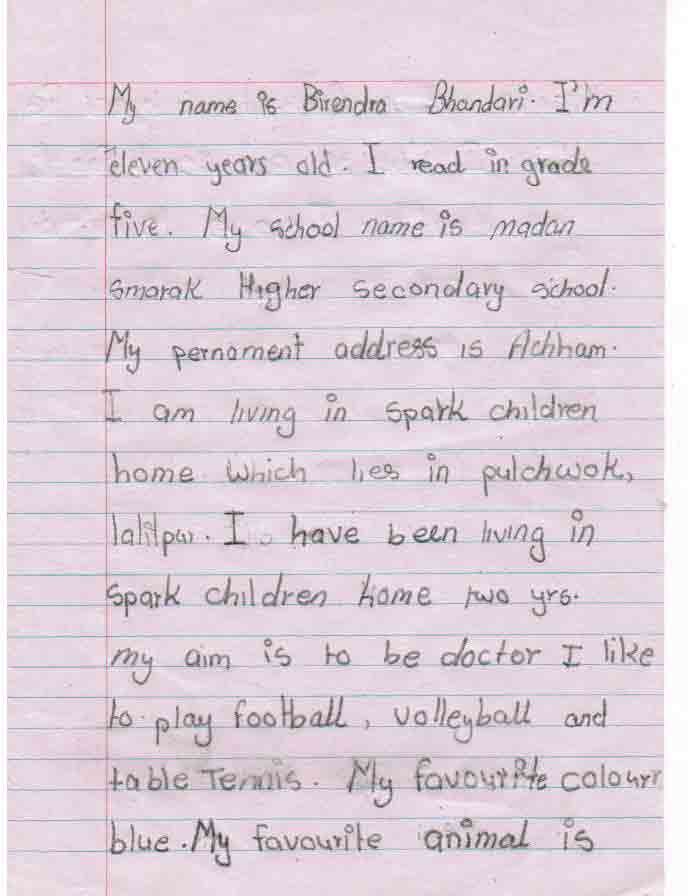 My name is Birendra Bhandari. I'm
eleven years old. I read in grade
five. My school name is madan
smarak Higher secondary school.
My pernament address is Achham.
I am living in spark children
home which lies in pulchwok,
lalitpur. I have been living in
spark children home two yrs.
my aim is to be doctor I like
to play football, volleyball and
table Tennis. My favourite colour
blue. My favourite animal is